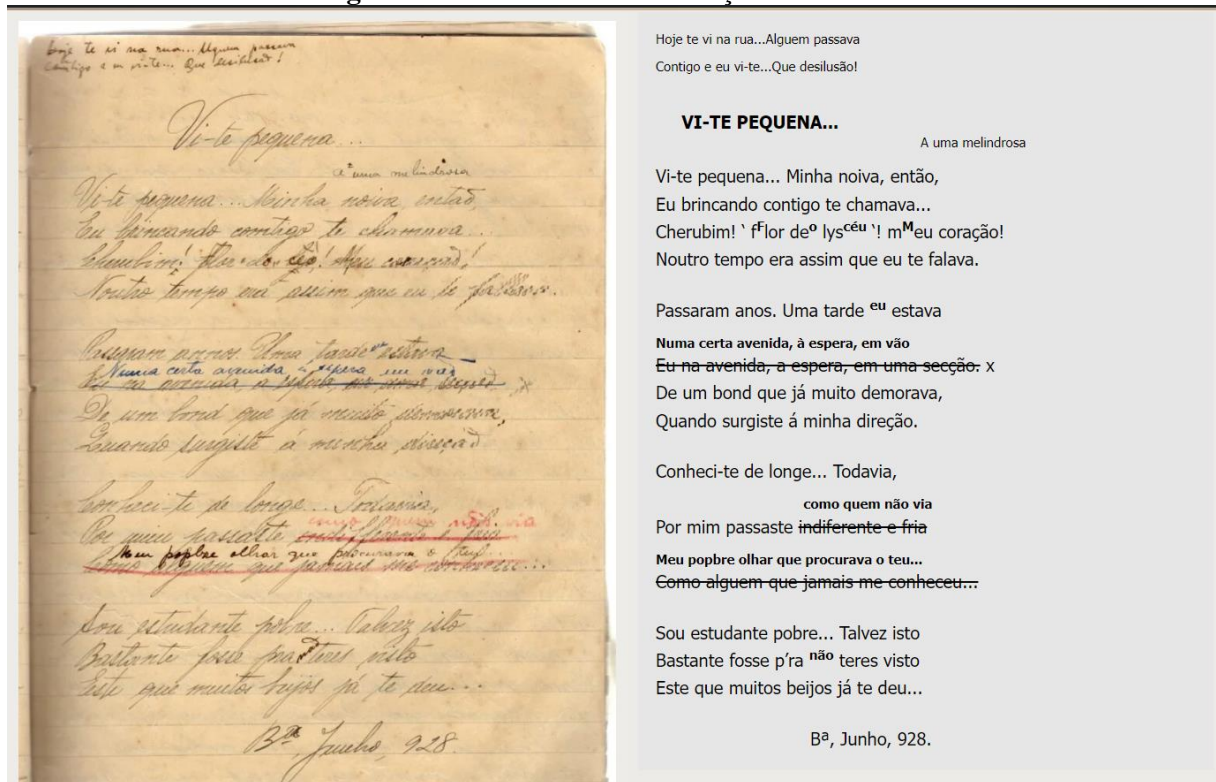 Hoje te vi na rua...Alguem passava
Contigo e eu vi-te... Que desilusão!
Vi-te pequena...
A uma melindrosa
Vi-te pequena... Minha noiva, então,
Eu brincando comtigo te chamava...
Cherubim! Flor do céu! Meu coração!
Noutro tempo era assim que eu te fallava.
Passaram annos. Uma tarde eu estava
Numa certa avenida, á espera, em vão
Eu na avenida a espera, em uma secção. x
De um bond que já muito demorava,
Quando surgiste á minha direcção.
Conheci-te de longe... Todavia,
como quem não via
Por mim passaste indiferente e fria
Meu popbre olhar que procurava o teu...
Como alguem que jamais me conheceu...
Sou estudante pobre... Talvez isto
Bastante fosse pra não teres visto
Este que muitos beijos já te deu...
Bª, Junho, 928.
Hoje te vi na rua...Alguem passava
Contigo e eu vi-te...Que desilusão!
VI-TE PEQUENA...
A uma melindrosa
Vi-te pequena... Minha noiva, então,
Eu brincando contigo te chamava...
Cherubim! ` fFlor deo lyscéu `! mMeu coração!
Noutro tempo era assim que eu te falava.
Passaram anos. Uma tarde eu estava
Numa certa avenida, à espera, em vão
Eu na avenida, a espera, em uma secção. x
De um bond que já muito demorava,
Quando surgiste á minha direção.
Conheci-te de longe... Todavia,
como quem não via
Por mim passaste indiferente e fria
Meu popbre olhar que procurava o teu...
Como alguem que jamais me conheceu...
Sou estudante pobre... Talvez isto
Bastante fosse p'ra não teres visto
Este que muitos beijos já te deu...
Bª, Junho, 928.